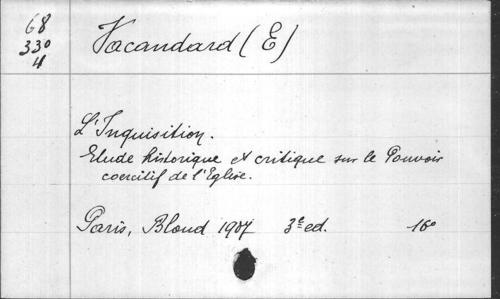 68
330
4
Vacandard (E)
L'Inquisition.
Etude historique et critique sur le Pouvoir
coercitif de l'Eglise.
Paris, Bloud 1907 3e ed. 16°